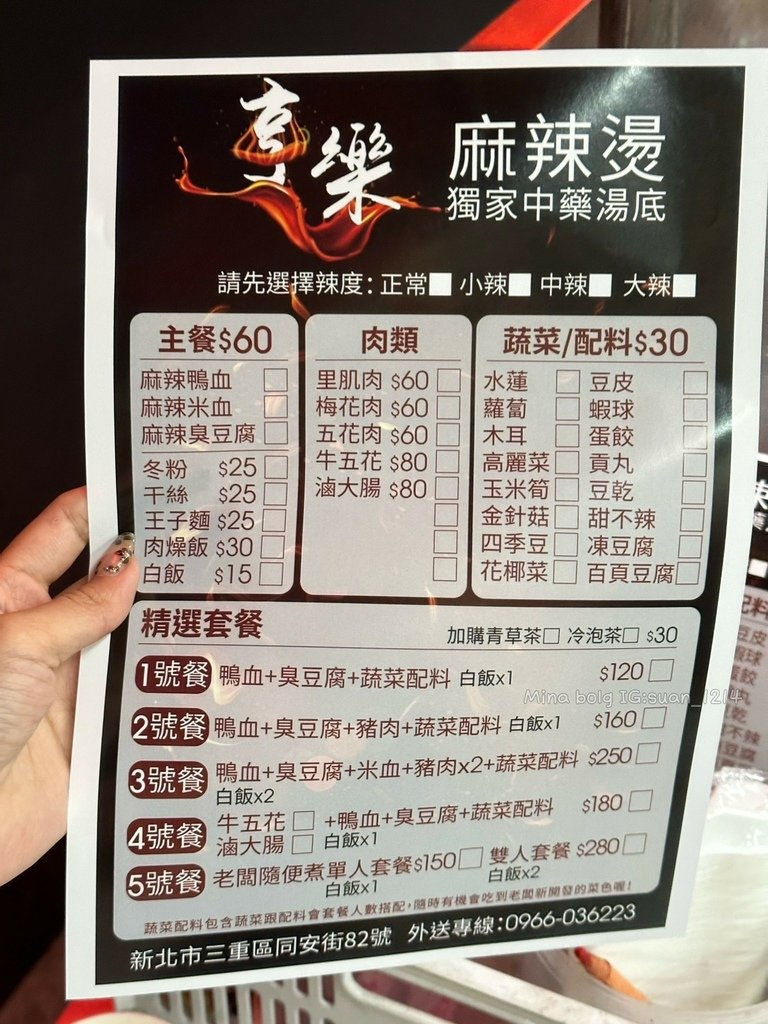 亨樂
麻辣燙
獨家中藥湯底
請先選擇辣度：正常 小辣 中辣 大辣
主餐$60
麻辣鴨血
麻辣米血
麻辣臭豆腐
冬粉 $25
干絲 $25
王子麵 $25
肉燥飯 $30
白飯 $15
肉類
里肌肉 $60
梅花肉 $60
五花肉 $60
牛五花 $80
滷大腸 $80
蔬菜/配料$30
水蓮 豆皮
蘿蔔 蝦球
木耳 蛋餃
高麗菜 貢丸
玉米筍 豆乾
金針菇 甜不辣
四季豆 凍豆腐
花椰菜 百頁豆腐
精選套餐
加購青草茶 冷泡茶 $30
1號餐 鴨血+臭豆腐+蔬菜配料 白飯x1 $120
2號餐 鴨血+臭豆腐+豬肉+蔬菜配料 白飯x1 $160
3號餐 鴨血+臭豆腐+米血+豬肉x2+蔬菜配料 $250
白飯x2
4號餐 牛五花 滷大腸 +鴨血+臭豆腐+蔬菜配料 $180
白飯x1
5號餐 老闆隨便煮單人套餐$150 雙人套餐 $280
白飯x1 白飯x2
蔬菜配料包含蔬菜跟配料會套餐人數搭配，隨時有機會吃到老闆新開發的菜色喔！
新北市三重區同安街82號 外送專線：0966-036223
Mina bolg IG:suan_1214
配料
豆皮
蝦球
蛋餃
貢丸
豆乾
甜不辣
凍豆腐